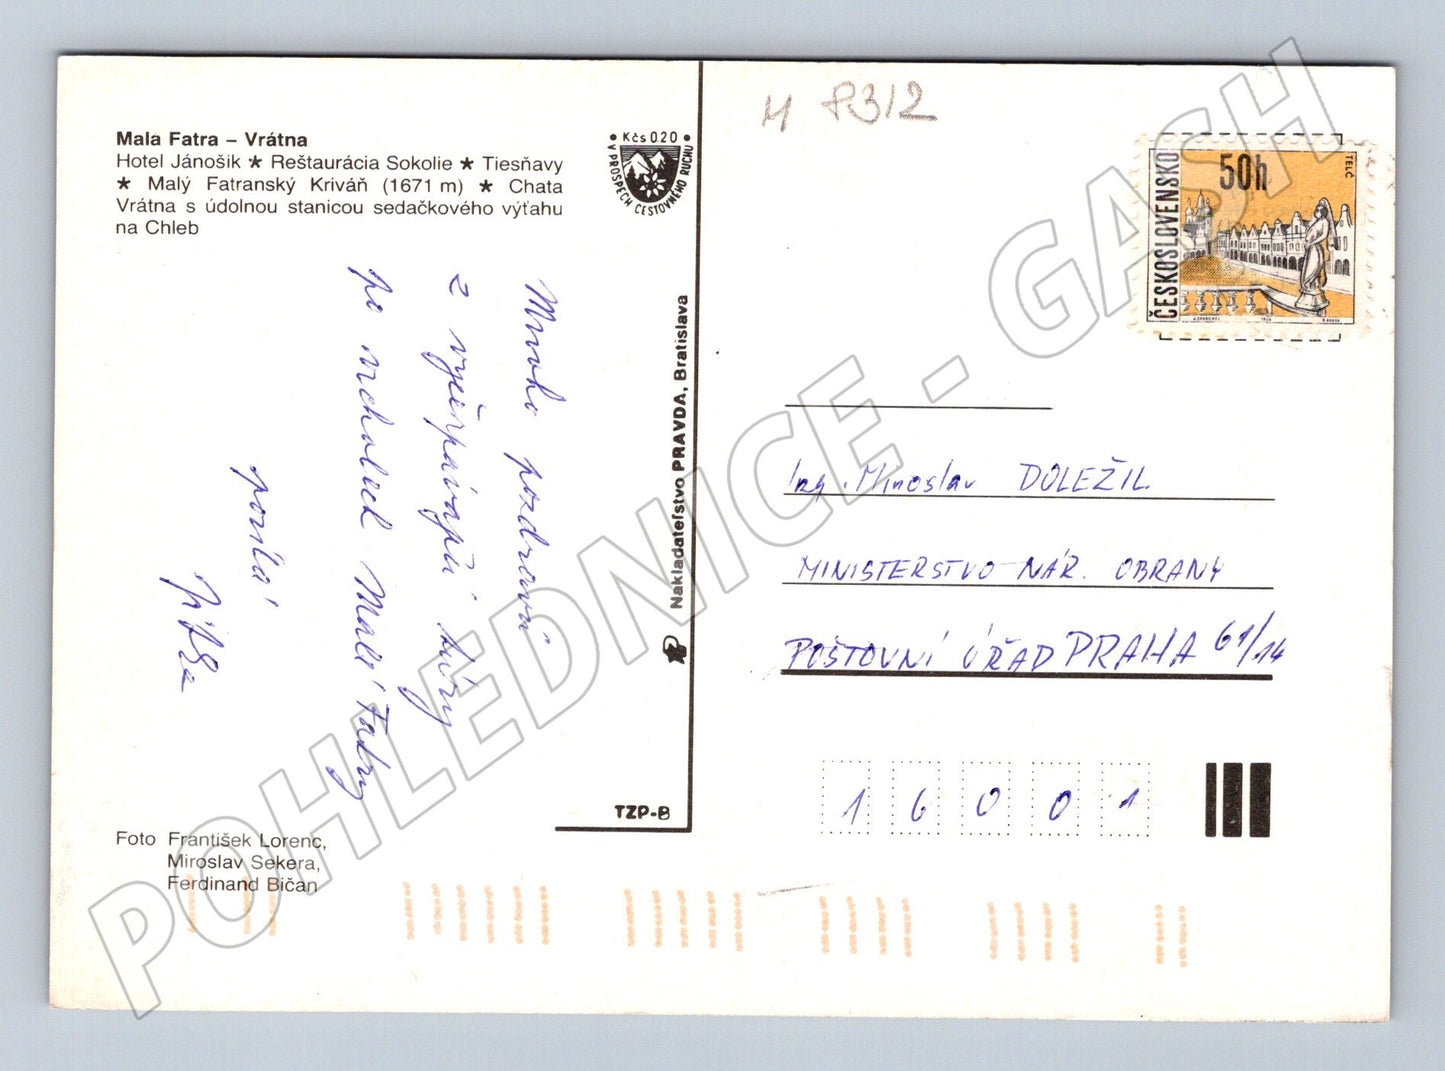 Mala Fatra – Vrátna
Hotel Jánošík ★ Reštaurácia Sokolie ★ Tiesňavy
★ Malý Fatranský Kriváň (1671 m) ★ Chata
Vrátna s údolnou stanicou sedačkového výťahu
na Chleb
• Kčs 020 •
V PROSPECH CESTOVNÉHO RUCHU
Mnoho pozdravů
z vyčerpávající túry
po vrcholech Malé Fatry
posílá
Nakladateľstvo PRAVDA, Bratislava
TZP-B
Foto František Lorenc,
Miroslav Sekera,
Ferdinand Bičan
M 8312
ČESKOSLOVENSKO
50h
TELČ
Ing. Miroslav DOLEŽIL
MINISTERSTVO NÁR. OBRANY
POŠTOVNÍ ÚŘAD PRAHA 61/14
1 6 0 0 1
POHLEDNICE - GASH